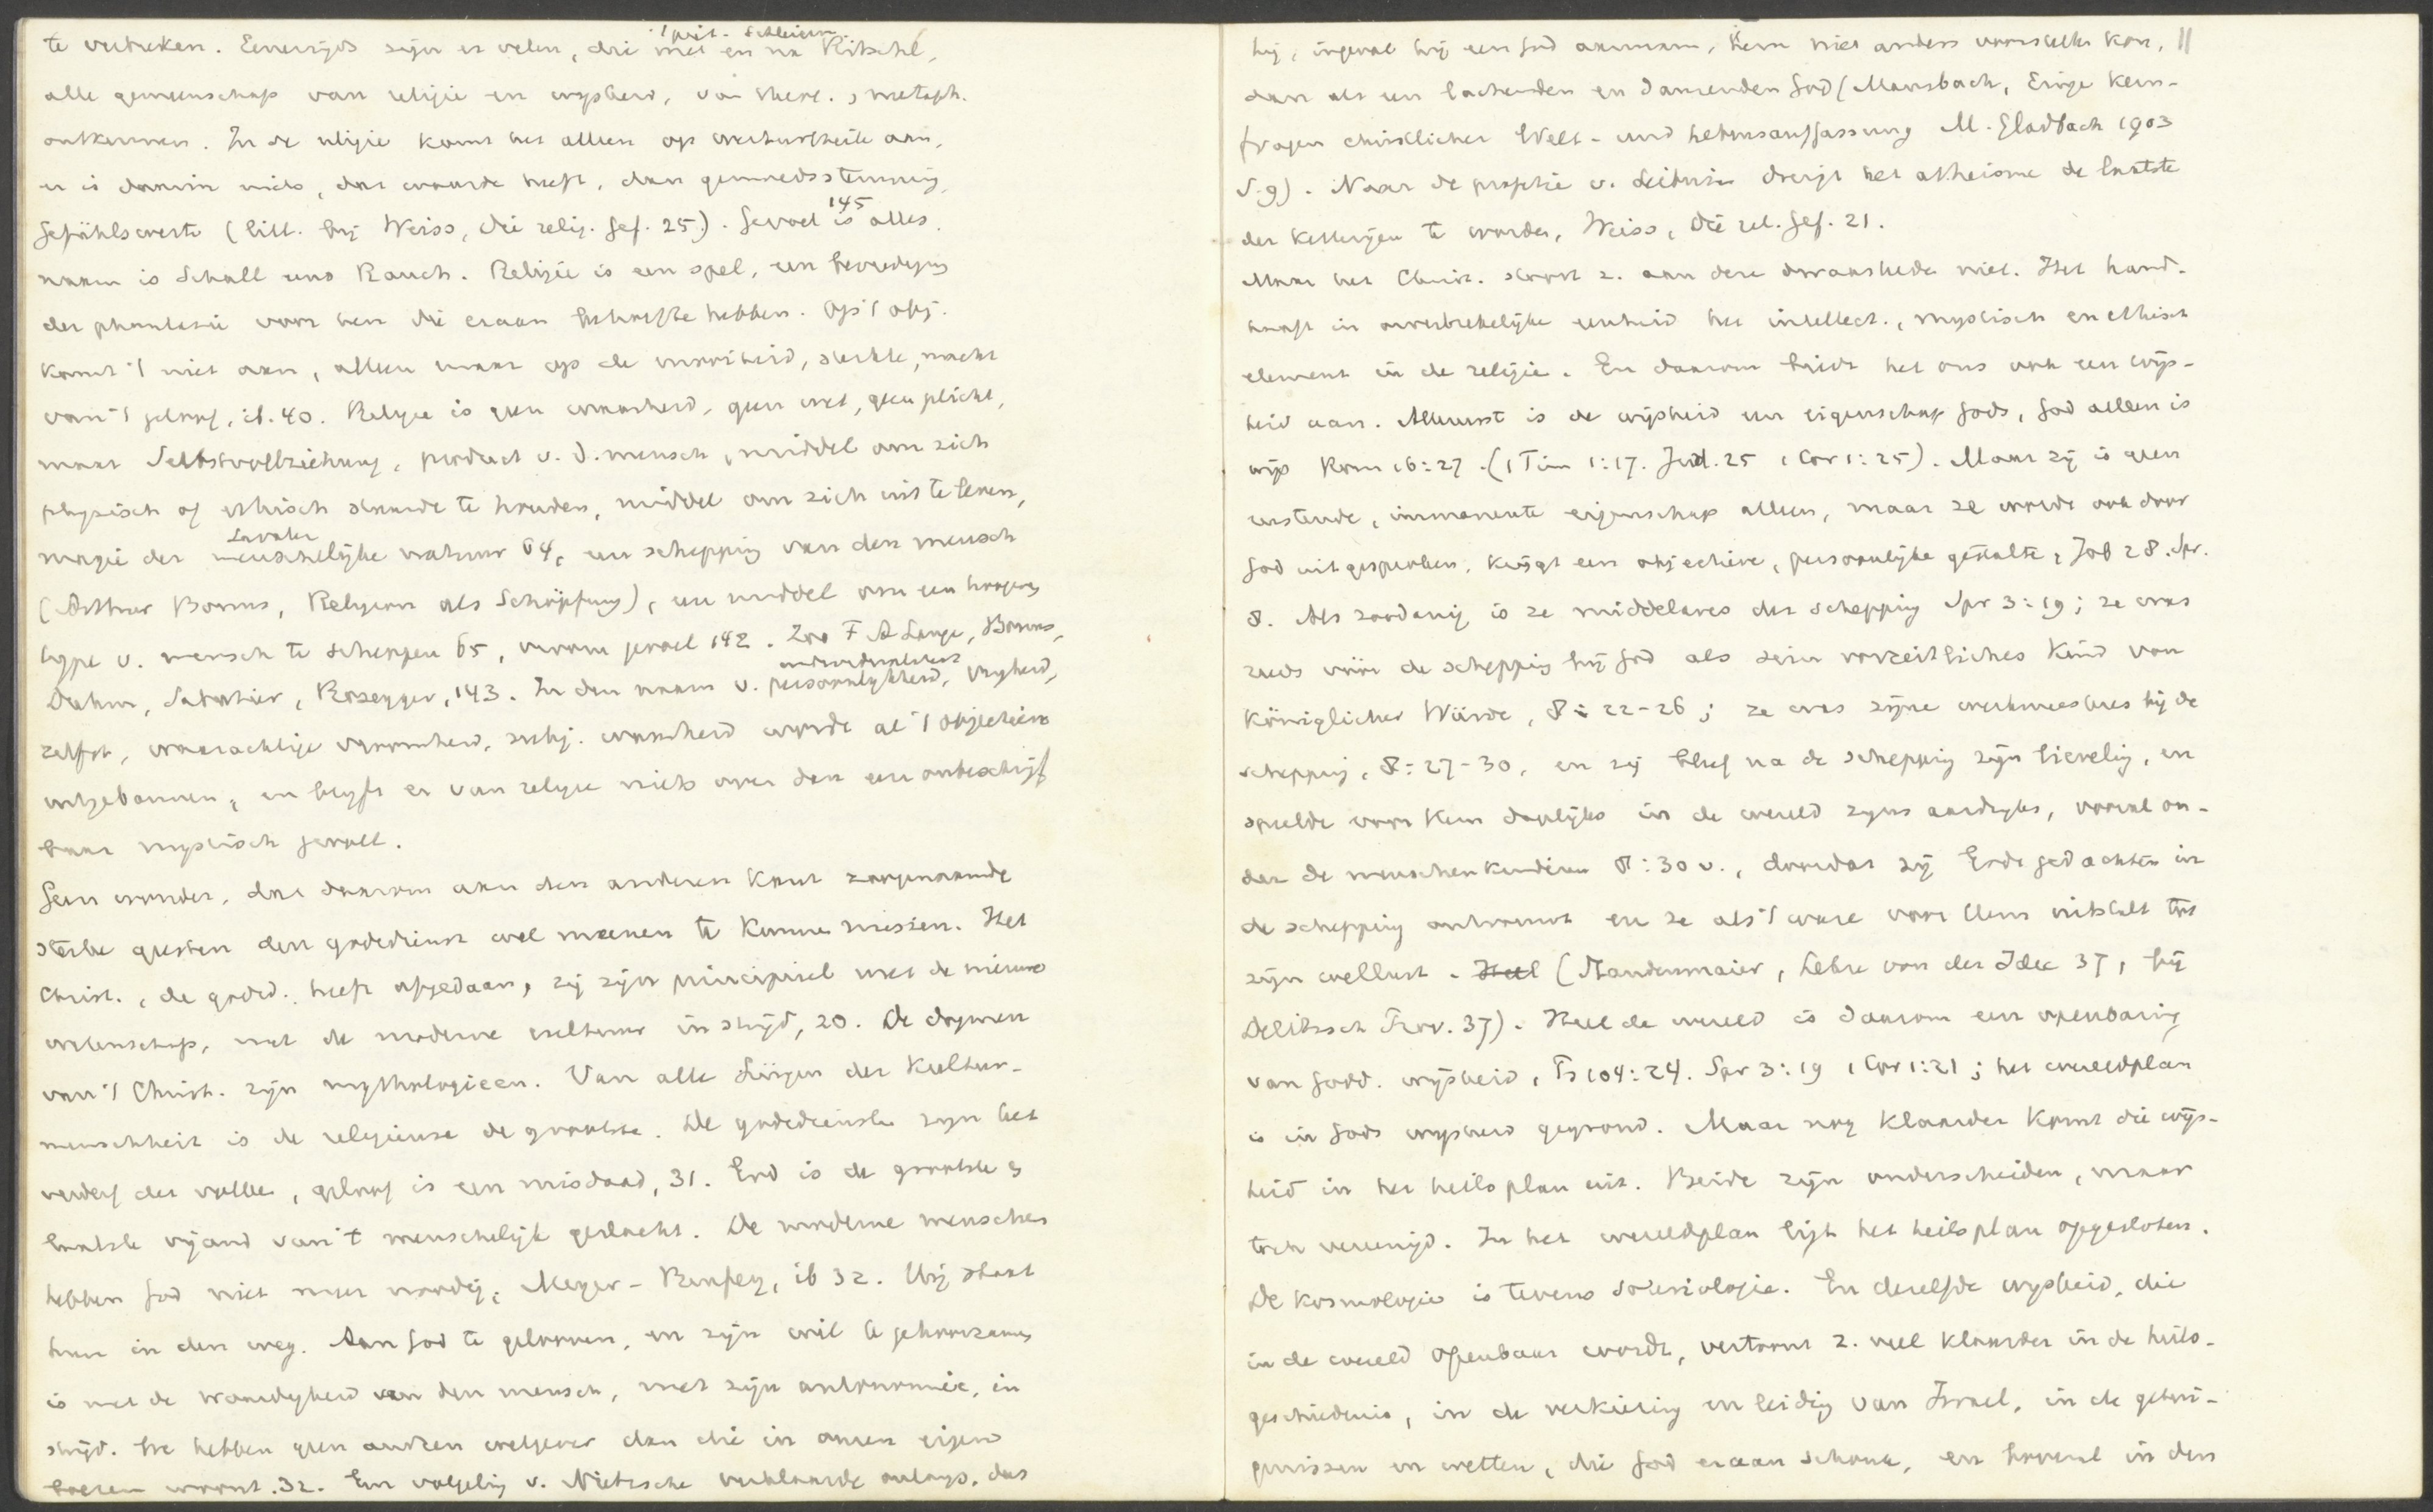 te vertrekken. Eenerzijds zijn er velen, die met en na Ritschl,
alle gemeenschap van religie en wijsheid, van theol. , metaph.
ontkennen. In de religie komt het alleen op werthurtheile aan,
er is daarin niets, dat waarde heeft, dan gemoedsstemming,
Gefühlswerte (litt. bij Weiss, die relig. Gef. 25). Gevoel is 145 alles.
naam is Schall und Rauch. Religie is een spel, een bevrediging
der phantasie voor hen die eraan behoefte hebben. Op 't obj.
komt 't niet aan, alleen maar op de vroomheid, sterkte, macht
van 't geloof, ib. 40. Religie is geen waarheid, geen wet, geen plicht,
maar Selbstvollziehung, product v. d. mensch, middel om zich
physisch of ethisch staande te houden, middel om zich uit te leven,
magie der menschelijke natuur 64, een schepping van den mensch
(Arthur Bonus, Religion als Schöpfung), een middel om een hooger
type v. mensch te scheppen 65, vroom gevoel 142. Zoo F A Lange, Bonus,
Sabatier, Rosegger, 143. In den naam v. persoonlijkheid, vrijheid,
zelfst, waarachtige vroomheid, subj. waarheid wordt al 't objectieve
uitgebannen, en blijft er van religie niets over dan een onbeschrijf
baar mystisch gevoel.
Geen wonder, dat daarom aan den anderen kant zoogenaamde
sterke geesten den godsdienst wel meenen te kunnen missen. Het
Christ., de godsd. heeft afgedaan, zij zijn principieel met de nieuwe
wetenschap, met de moderne cultuur in strijd, 20. De dogmen
van 't Christ. zijn mythologieen. Van alle Lügen der Kultur-
menschheit is de religieuse de grootste. De godsdiensten zijn het
verderf der volken, geloof is een misdaad, 31. God is de grootste &
laatste vijand van 't menschelijk geslacht. De moderne menschen
hebben God niet meer noodig, Meyer-Benfey, ib 32. Hij staat
hun in den weg. Aan God te gelooven, en zijn wil te gehoorzamen
is met de waardigheid van den mensch, met zijn autonomie, in
strijd. We hebben geen anderen wetgever dan die in onzen eigen
boezem woont. 32. Een volgeling v. Nietzsche verklaarde onlangs, dat
hij, ingeval hij een God aannam, Hem niet anders voorstellen kon, 11
dan als een lachenden en dansenden God (Mausbach, Einige Kern-
fragen christlicher Welt- und Lebensauffassung M. Gladbach 1903
S. 9). Naar de prophetie v. Leibniz dreigt het atheisme de laatste
der ketterijen te worden, Weiss, Die rel. Gef. 21.
Maar het Christ. stoort z. aan deze dwaasheden niet. Het hand-
haaft in onverbrekelijke eenheid het intellect., mystisch en ethisch
element in de religie. En daarom biedt het ons ook een wijs-
heid aan. Allereerst is de wijsheid een eigenschap Gods, God alleen is
wijs Rom 16:27. (1 Tim 1:17. Jud. 25 1 Cor 1:25). Maar zij is geen
rustende, immanente eigenschap alleen, maar ze wordt ook door
God uitgesproken, krijgt een objectieve, persoonlijke gestalte, Job 28. Spr.
8. Als zoodanig is ze middelares der schepping Spr 3:19; ze was
reeds vóór de schepping bij God als sein vorzeitliches Kind von
königlicher Würde, 8:22-26; ze was zijne werkmeesteres bij de
schepping, 8:27-30, en zij bleef na de schepping zijn lieveling, en
speelde voor Hem dagelijks in de wereld zijns aardrijks, vooral on-
der de menschenkinderen 8:30 v., doordat zij Gods gedachten in
de schepping ontvouwt en ze als 't ware voor Hem uitstalt tot
zijn wellust. Heel (Staudenmaier, Lehre von der Idee 37, bij
Delitzsch Prov. 37). Heel de wereld is daarom een openbaring
van Godd. wijsheid, Ps 104:24. Spr 3:19 1 Cor 1:21; het wereldplan
is in Gods wijsheid gegrond. Maar nog klaarder komt die wijs-
heid in het heilsplan uit. Beide zijn onderscheiden, maar
toch vereenigd. In het wereldplan ligt het heilsplan opgesloten.
De kosmologie is tevens soteriologie. En dezelfde wijsheid, die
in de wereld openbaar wordt, vertoont z. veel klaarder in de heils-
geschiedenis, in de verkiezing en leiding van Israel, in de getui-
genissen en wetten, die God eraan schonk, en bovenal in den